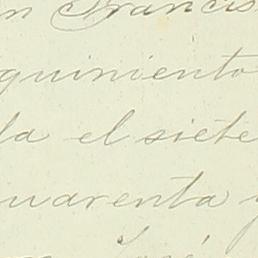 n Francis
quiniento
la el siete
uarenta y
José